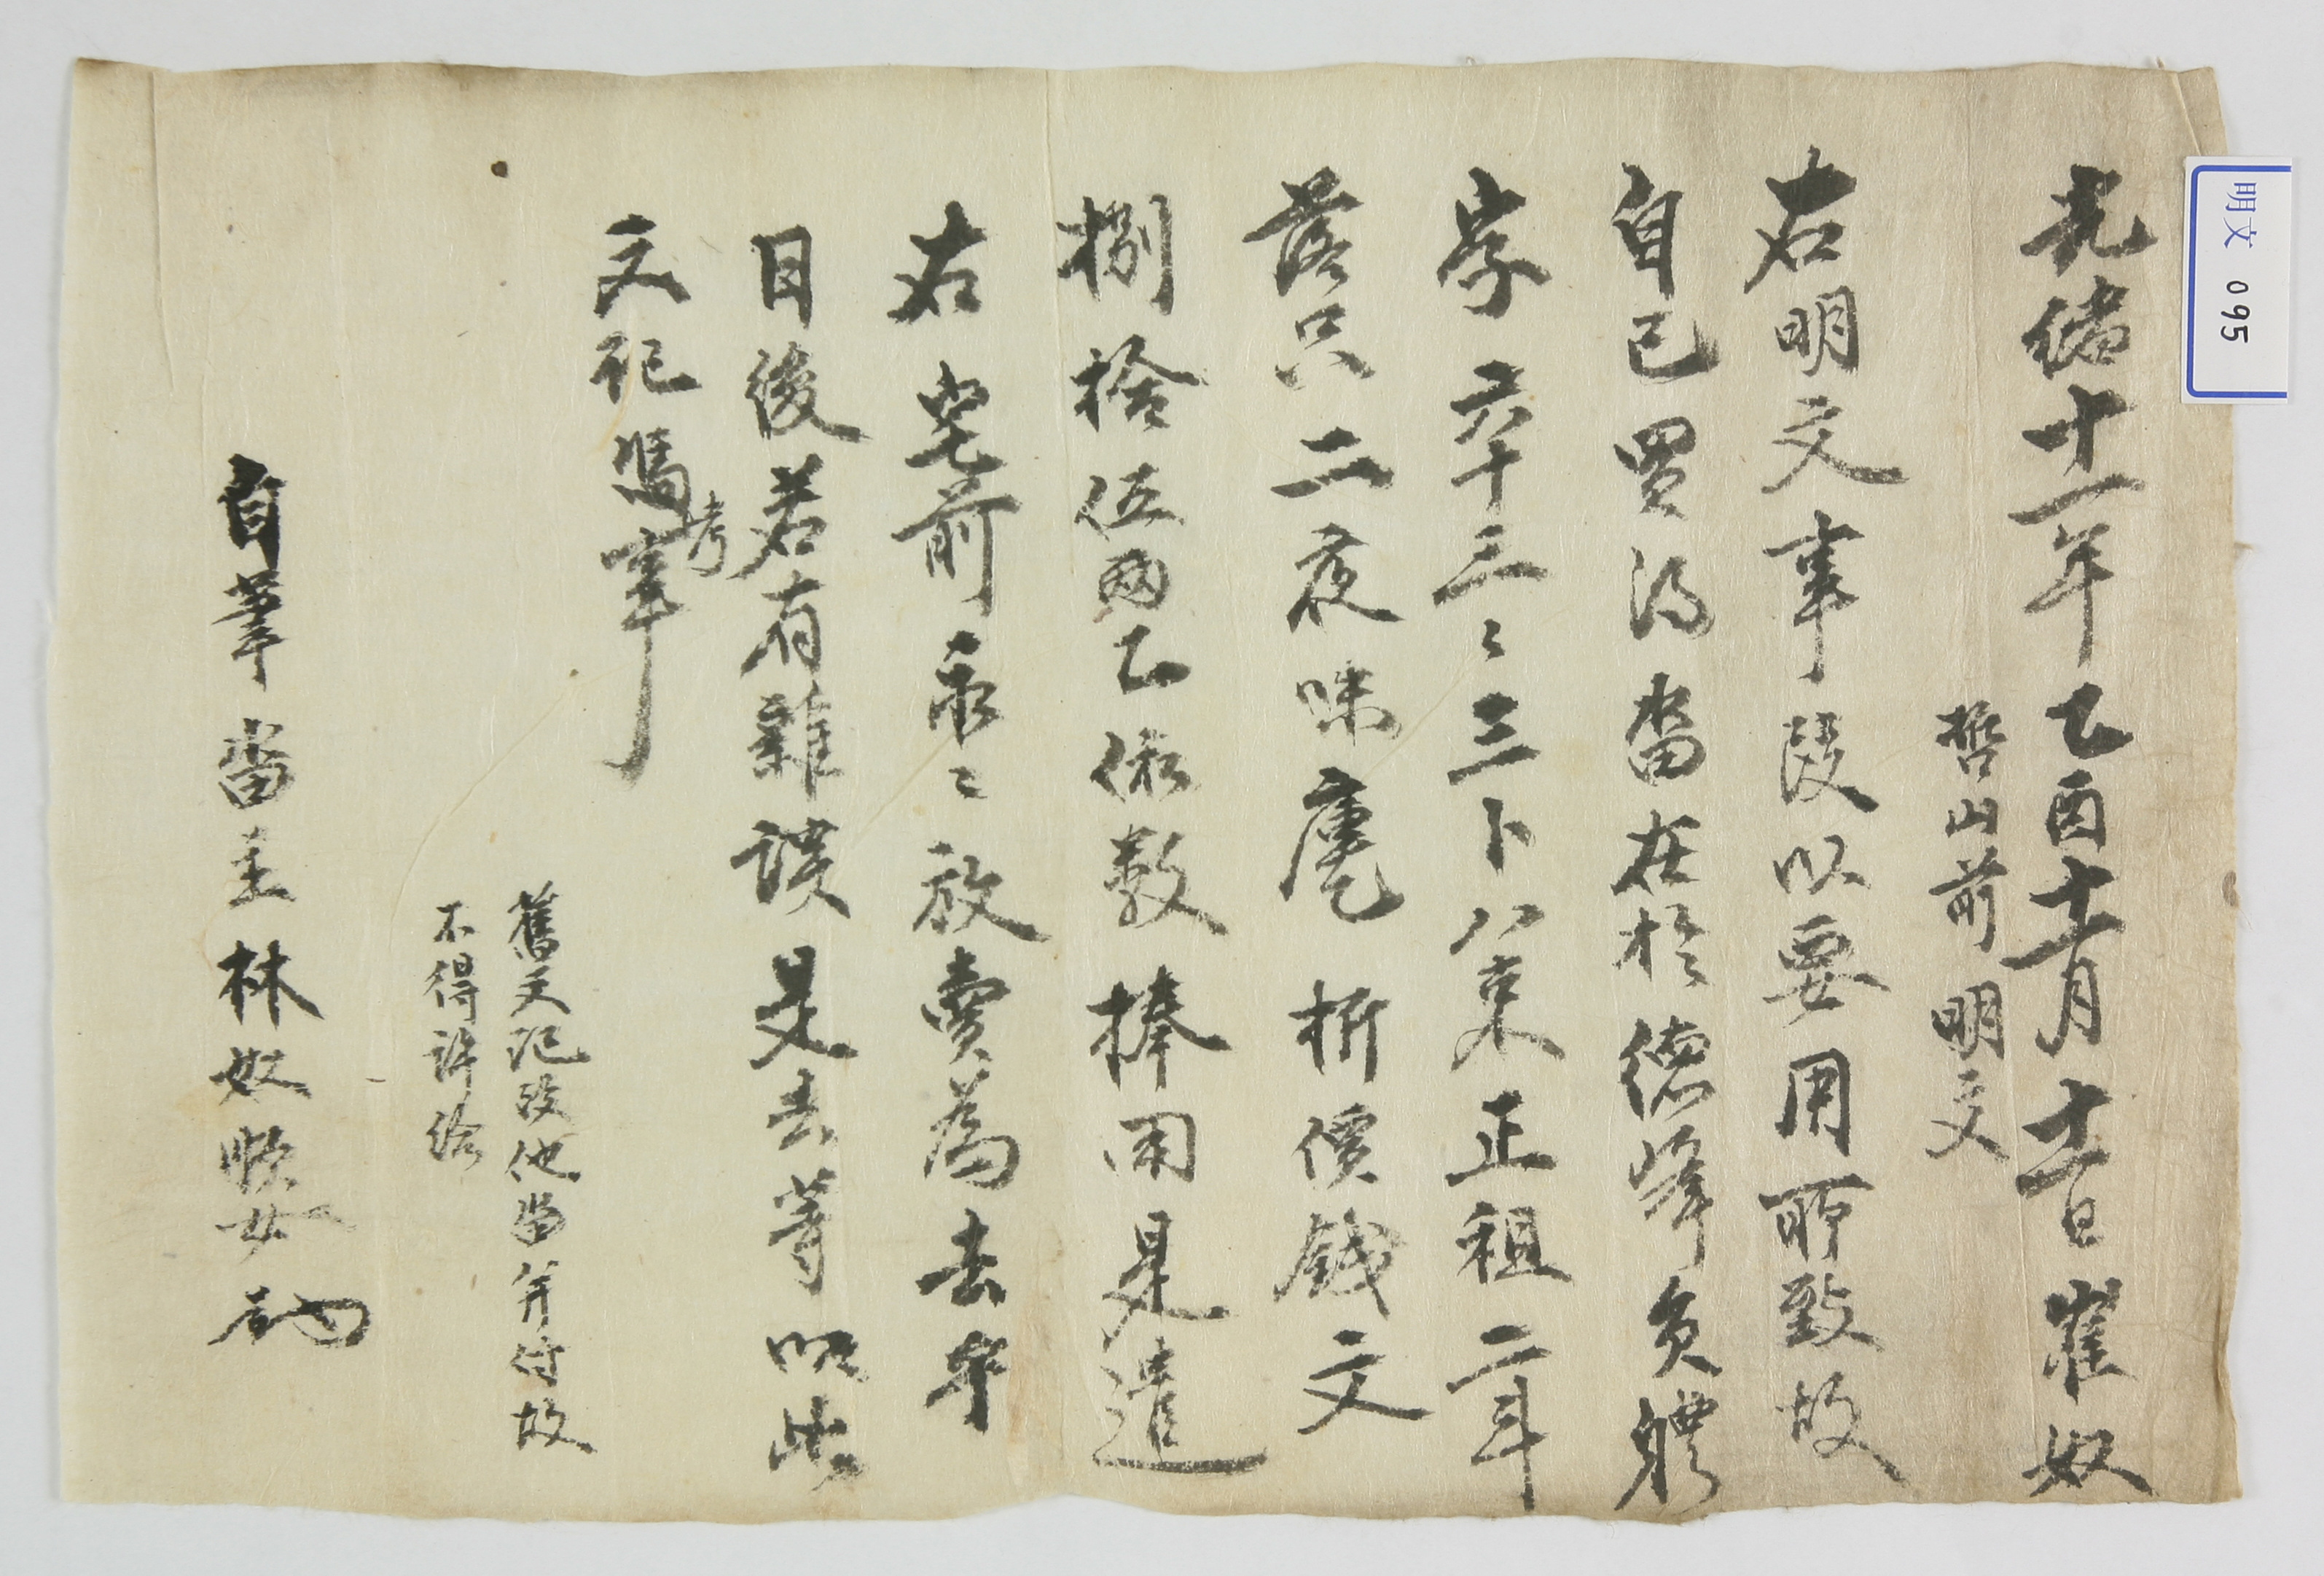 光緖十一年乙酉十二月十一日崔奴
哲山前明文
右明文事段以要用所致故
自己買得畓在於德峰員軆
字六十三〻三卜八束正租二斗
落只二夜味庫折價錢文
捌拾伍兩乙依數捧用是遣
右宅前永〻放賣爲去乎
日後若有雜談是去等以此
文記憑考事
舊文記段他畓幷付故
不得許給
自筆畓主林奴
明文 095